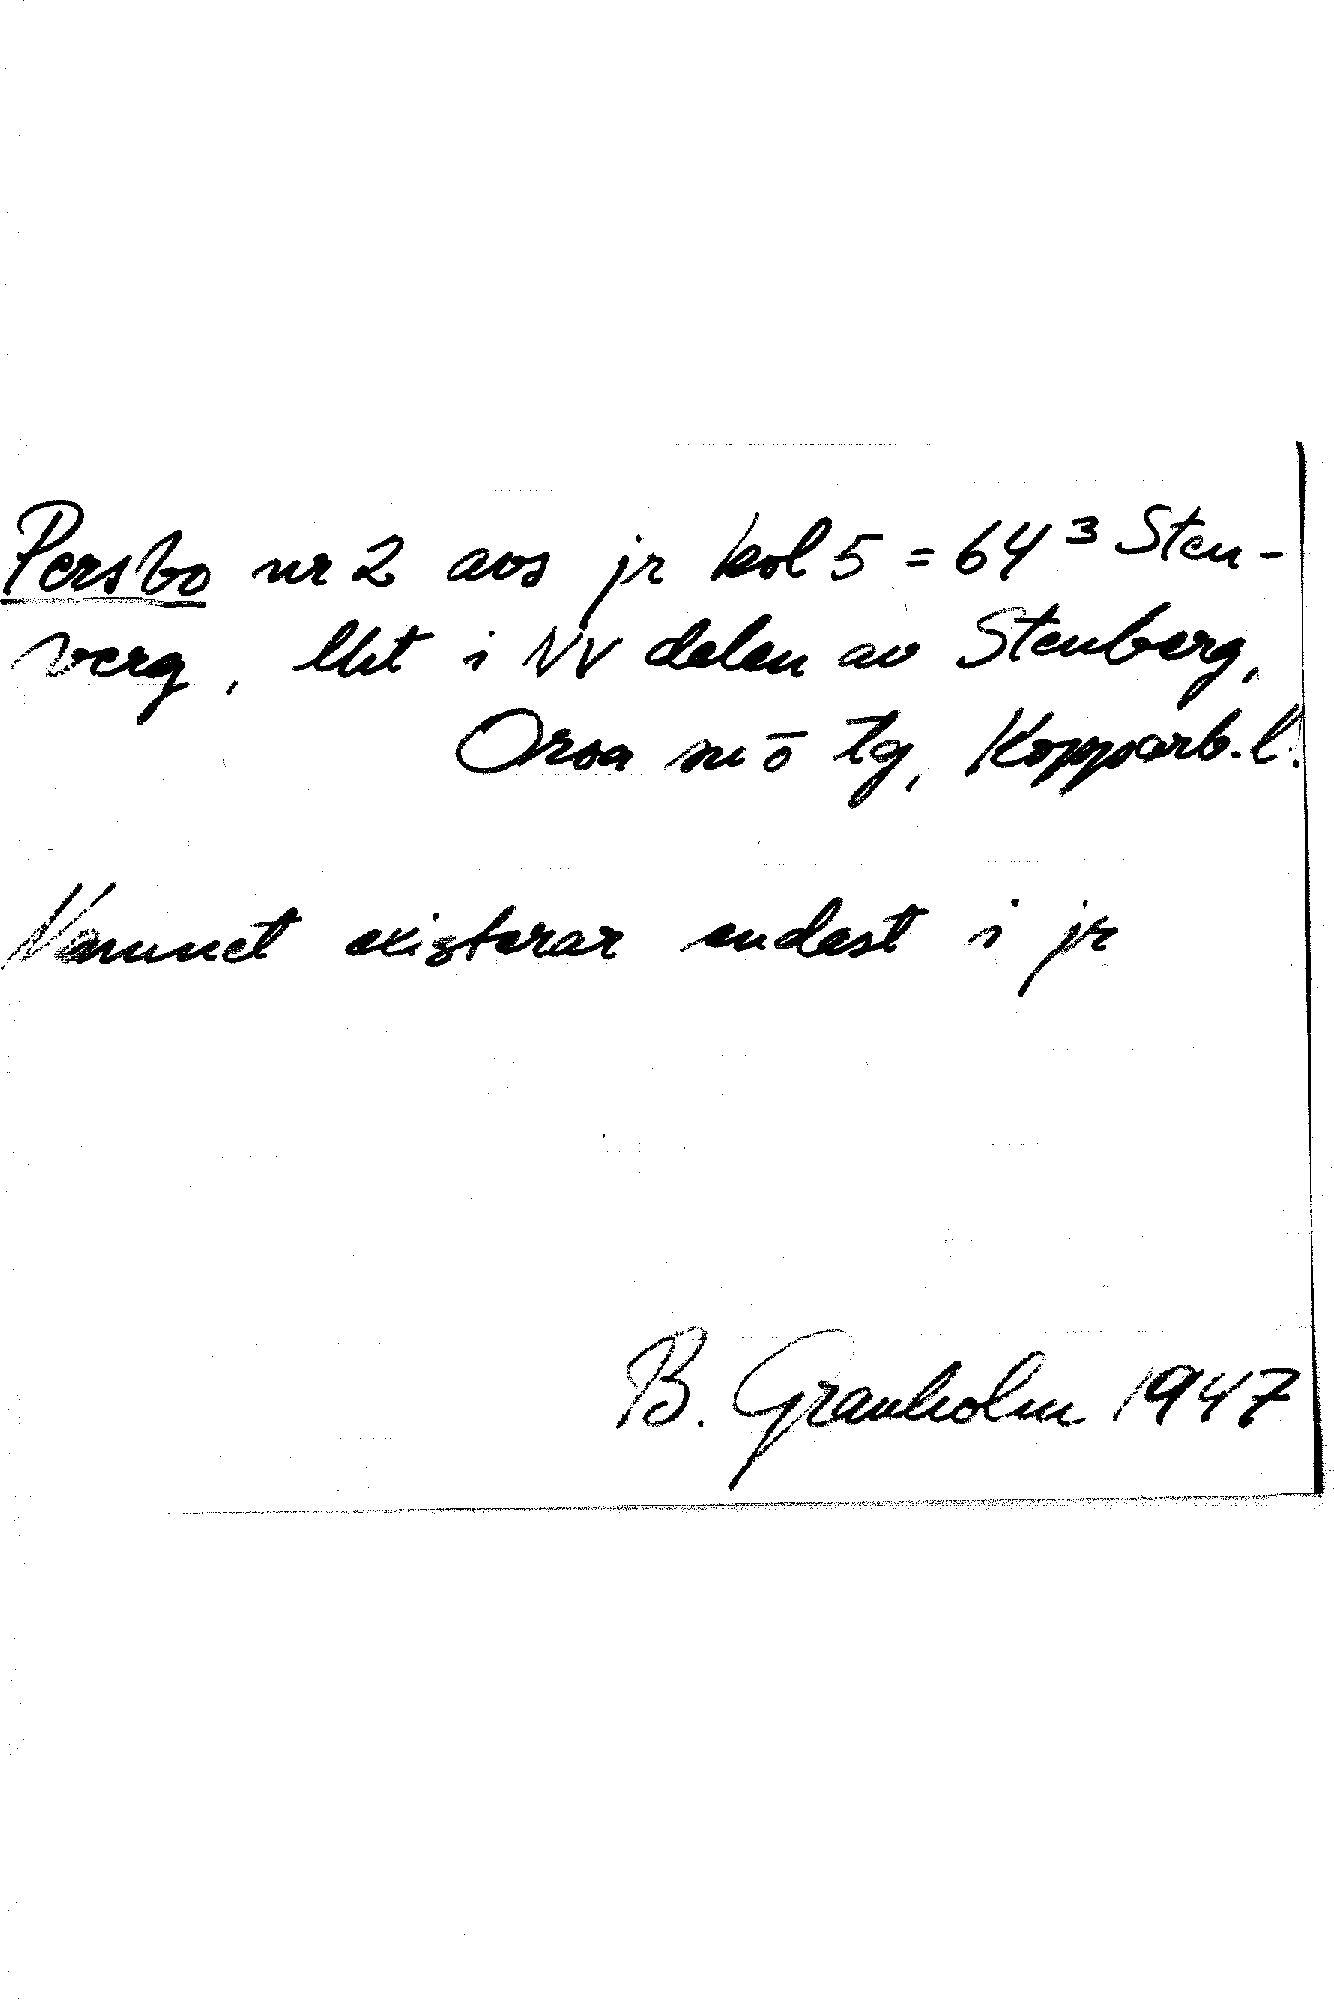 Persbo nr 2 avs jr kol 5 = 64³ Sten-
berg, lht i NV delen av Stenberg,
Orsa sn o tg, Kopparb. l.
Namnet existerar endast i jr
B. Granholm 1947